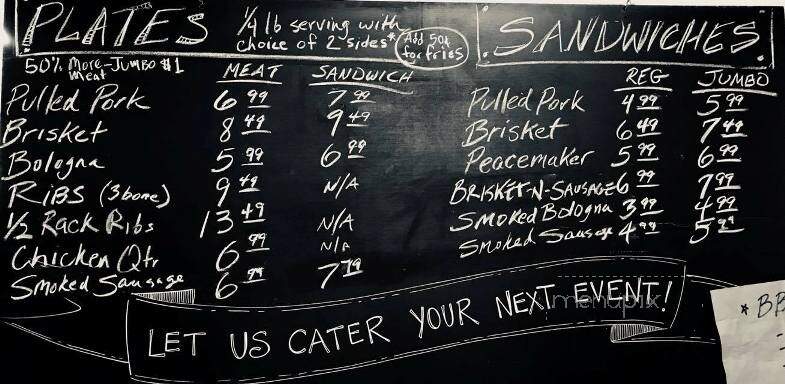 PLATES 1/4 lb serving with choice of 2 sides*
Add 50¢ for fries
50% More-Jumbo $1
meat
MEAT SANDWICH
Pulled Pork 6 99 7 99
Brisket 8 49 9 49
Bologna 5 99 6 99
RiBS (3 bone) 9 49 N/A
1/2 Rack Ribs 13 49 N/A
Chicken Qtr 6 99 N/A
Smoked Sausage 6 99 7 79
SANDWICHES
REG JUMBO
Pulled Pork 4 99 5 99
Brisket 6 49 7 49
Peacemaker 5 99 6 99
BRISKET-N-SAUSAGE 6 99 7 99
Smoked Bologna 3 99 4 99
Smoked Sausage 4 99 5 99
LET US CATER YOUR NEXT EVENT!
menupix
* BB